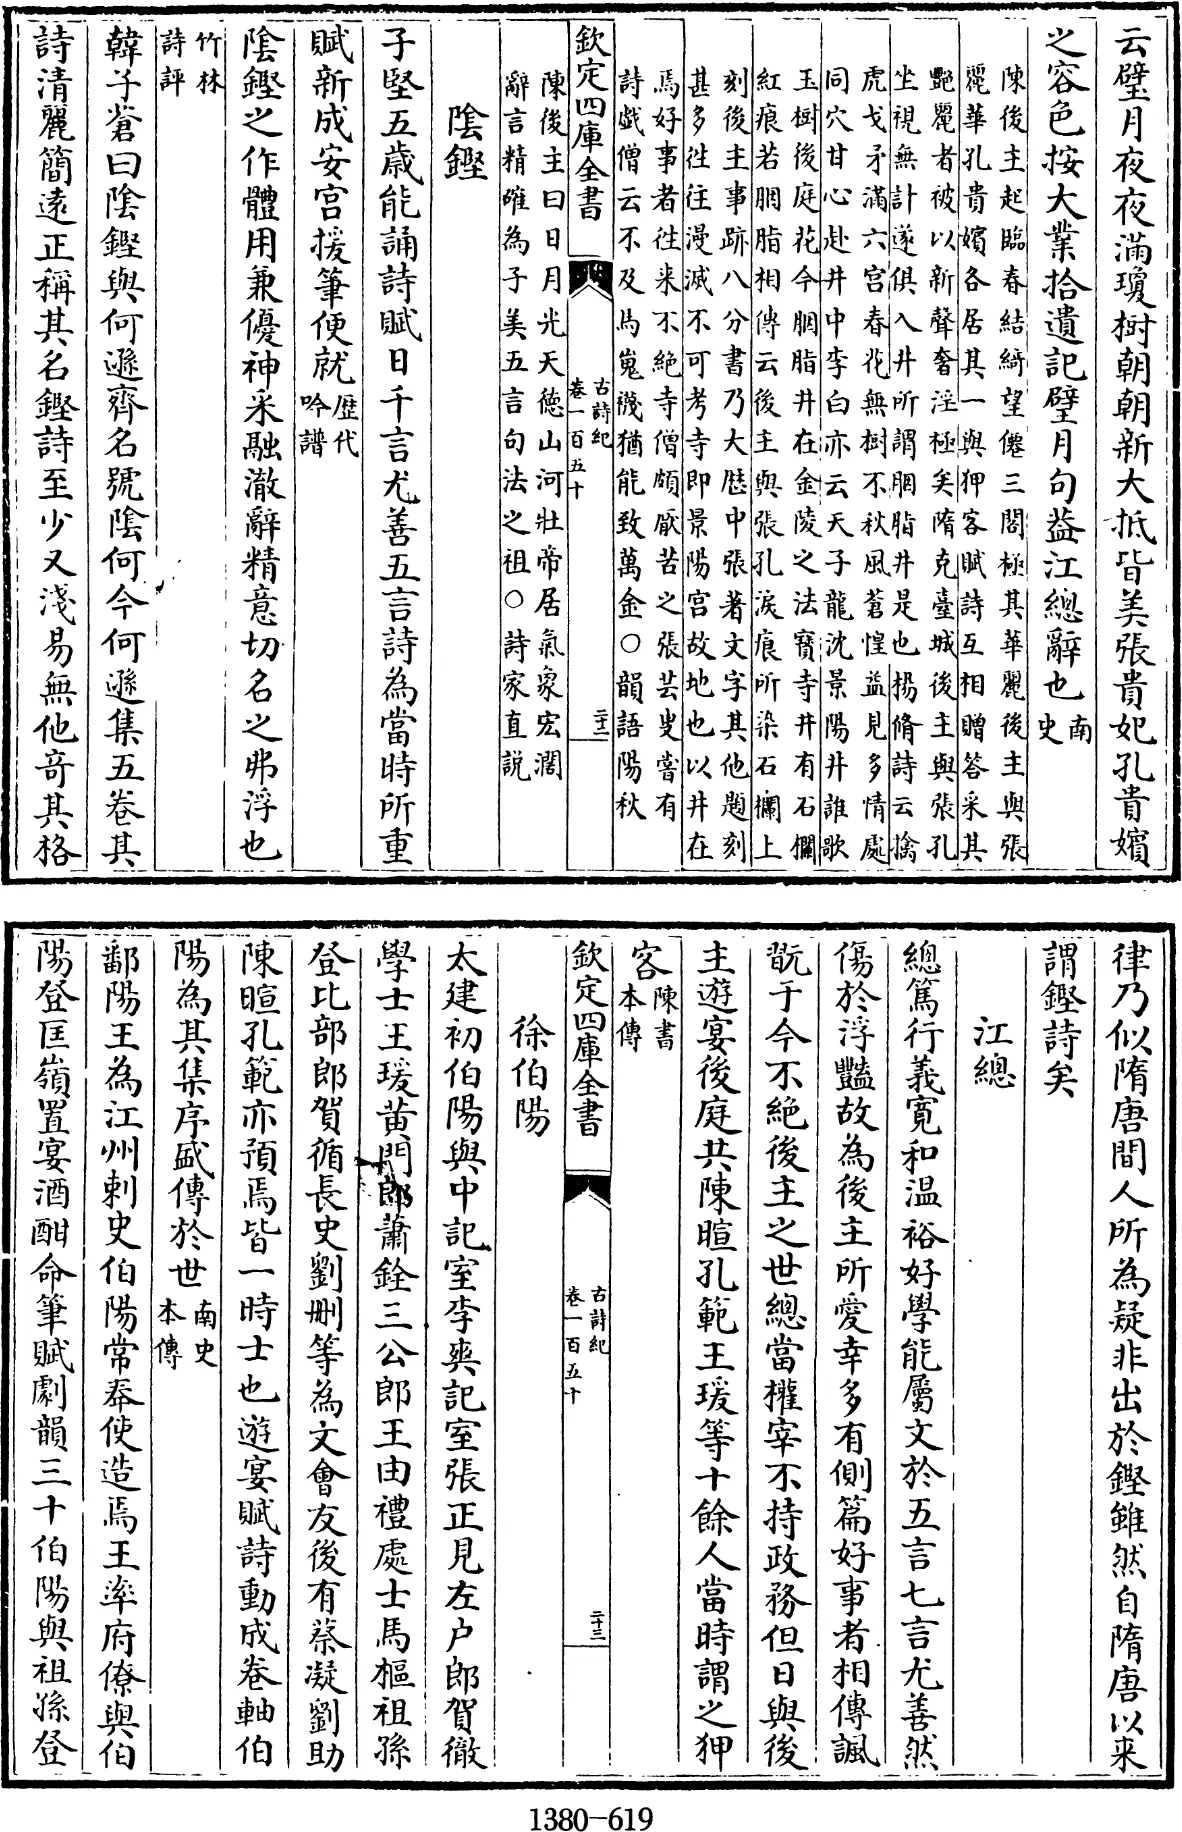 云璧月夜夜滿瓊樹朝朝新大抵皆美張貴妃孔貴嬪
之容色按大業拾遺記璧月句蓋江總辭也南
史
陳後主起臨春結綺望僊三閣極其華麗後主與張
麗華孔貴嬪各居其一與狎客賦詩互相贈答采其
艷麗者被以新聲奢淫極矣隋克臺城後主與張孔
坐視無計遂俱入井所謂胭脂井是也楊脩詩云擒
虎戈矛滿六宮春花無樹不秋風蒼惶益見多情處
同穴甘心赴井中李白亦云天子龍沈景陽井誰歌
玉樹後庭花今胭脂井在金陵之法寶寺井有石欄
紅痕若胭脂相傳云後主與張孔淚痕所染石欄上
刻後主事跡八分書乃大厯中張著文字其他題刻
甚多往往漫滅不可考寺即景陽宮故地也以井在
焉好事者往來不絶寺僧頗厭苦之張芸叟嘗有
詩戲僧云不及馬嵬襪猶能致萬金○韻語陽秋
欽定四庫全書
古詩紀
卷一百五十
二十二
陳後主曰日月光天德山河壯帝居氣象宏濶
辭言精確為子美五言句法之祖○詩家直説
陰鏗
子堅五歲能誦詩賦日千言尤善五言詩為當時所重
賦新成安宮援筆便就歷代
吟譜
陰鏗之作體用兼優神采融澈辭精意切名之弗浮也
竹林
詩評
韓子蒼曰陰鏗與何遜齊名號陰何今何遜集五卷其
詩清麗簡遠正稱其名鏗詩至少又淺易無他奇其格
律乃似隋唐間人所為疑非出於鏗雖然自隋唐以来
謂鏗詩矣
江總
總篤行義寛和温裕好學能屬文於五言七言尤善然
傷於浮豔故為後主所愛幸多有側篇好事者相傳諷
翫于今不絶後主之世總當權宰不持政務但日與後
主遊宴後庭共陳暄孔範王瑗等十餘人當時謂之狎
客陳書
本傳
欽定四庫全書
古詩紀
卷一百五十
二十三
徐伯陽
太建初伯陽與中記室李爽記室張正見左户郎賀徹
學士王瑗黄門郎蕭銓三公郎王由禮處士馬樞祖孫
登比部郎賀循長史劉刪等為文會友後有蔡凝劉助
陳暄孔範亦預焉皆一時士也遊宴賦詩動成卷軸伯
陽為其集序盛傳於世南史
本傳
鄱陽王為江州刺史伯陽常奉使造焉王率府僚與伯
陽登匡嶺置宴酒酣命筆賦劇韻三十伯陽與祖孫登
1380-619